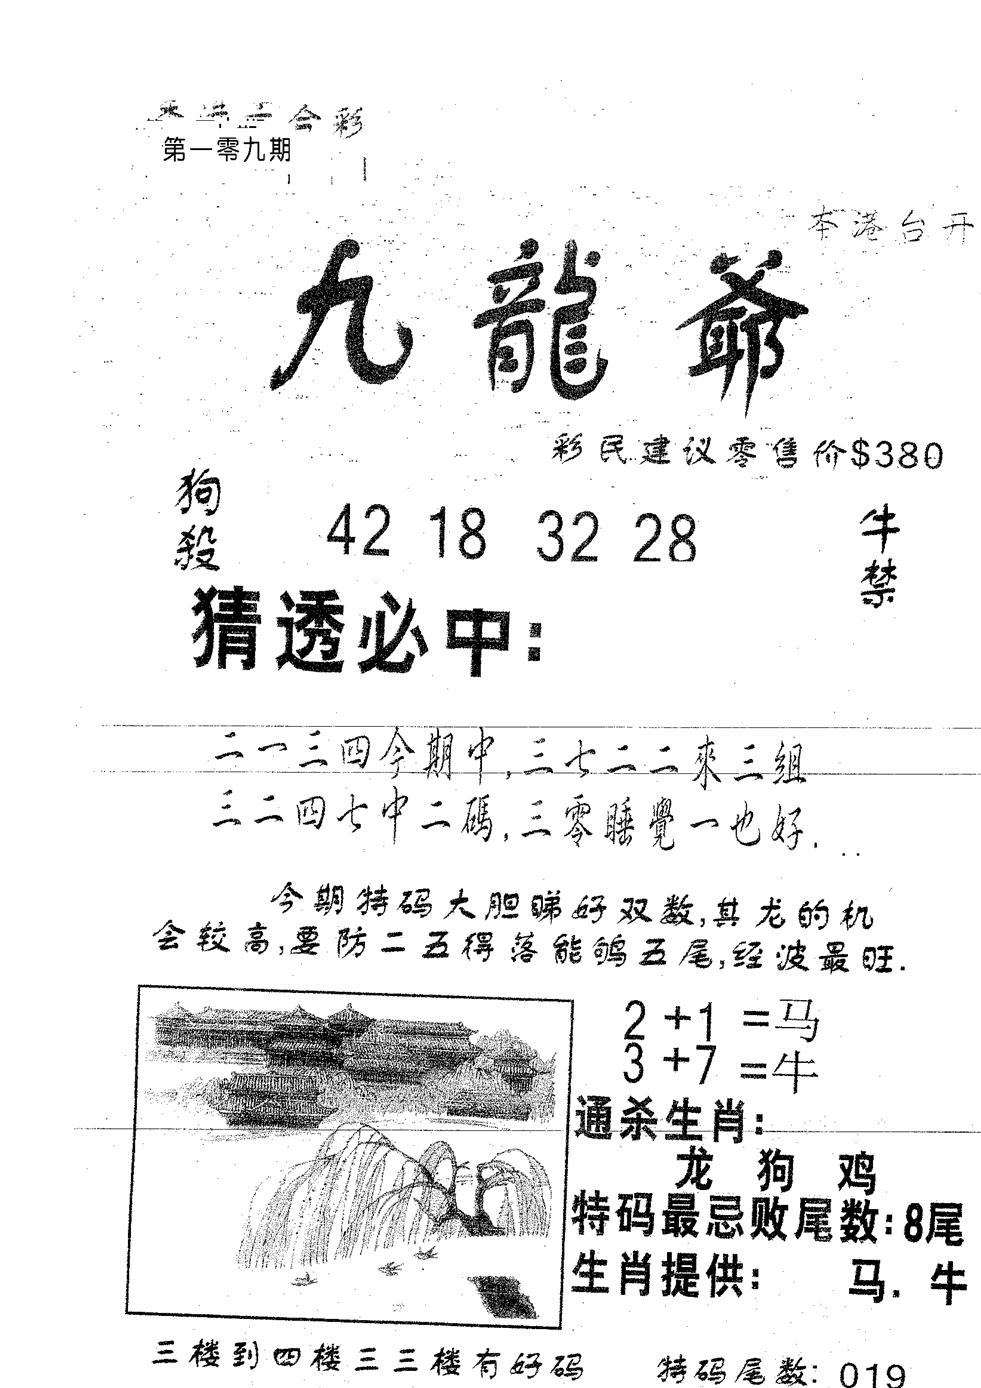 合彩
第一零九期
本港台开
九龍爺
彩民建议零售价$380
狗殺
42 18 32 28
牛禁
猜透必中:
二一三四今期中,三七二二來三組
三二四七中二碼,三零睡覺一也好.
今期特码大胆睇好双数,其龙的机
会较高,要防二五得落能鸲五尾,经波最旺.
2+1=马
3+7=牛
通杀生肖:
龙 狗 鸡
特码最忌败尾数:8尾
生肖提供: 马. 牛
三楼到四楼三三楼有好码 特码尾数: 019